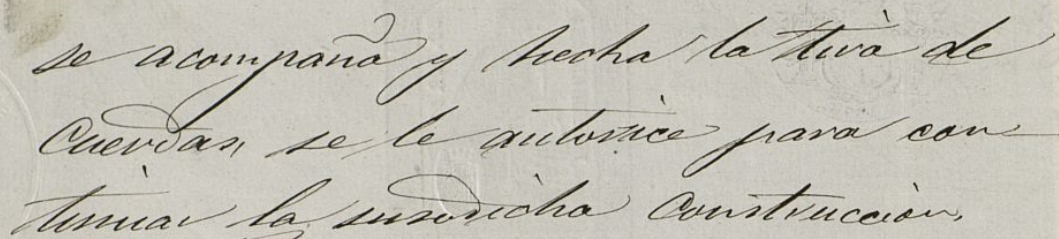 se acompaña y hecha la tira de
Cuerdas, se le autorice para con
tinuar la susodicha Construccion.